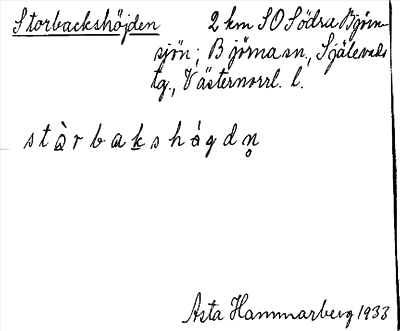 Storbackshöjden 2 km SO Södra Björn-
sjön; Björna sn., Själevads
tg., Västernorrl. l.
stὰrbakshágdn̥
Asta Hammarberg 1933